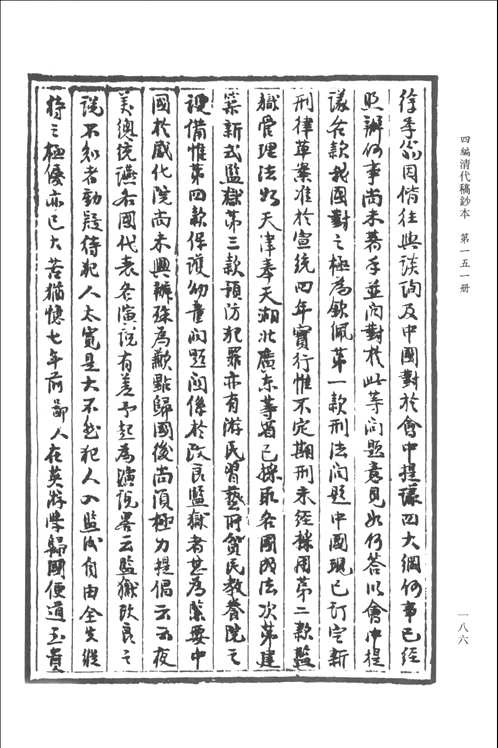 四編清代稿鈔本　第一五一冊
一八六
徐季翁因偕往與談詢及中國對於會中提議四大綱何事已經
照辦何事尚未著手並問對於此等問題意見如何答以會中提
議各款我國對之極為欽佩第一款刑法問題中國現已訂定新
刑律草案准於宣統四年實行惟不定期刑未經採用第二款監
獄管理法如天津奉天湖北廣東等省已採取各國成法次第建
築新式監獄第三款預防犯罪亦有游民習藝所貧民教養院之
設備惟第四款保護幼童問題關係於改良監獄者甚為緊要中
國於感化院尚未興辦殊為歉點歸國後尚須極力提倡云云夜
美總統讌各國代表各演說有差予起為演說畧云監獄改良之
說不知者動疑待犯人太寬是大不然犯人入監後自由全失縱
待之極優亦已大苦猶憶七年前鄙人在英游學歸國便道至貴